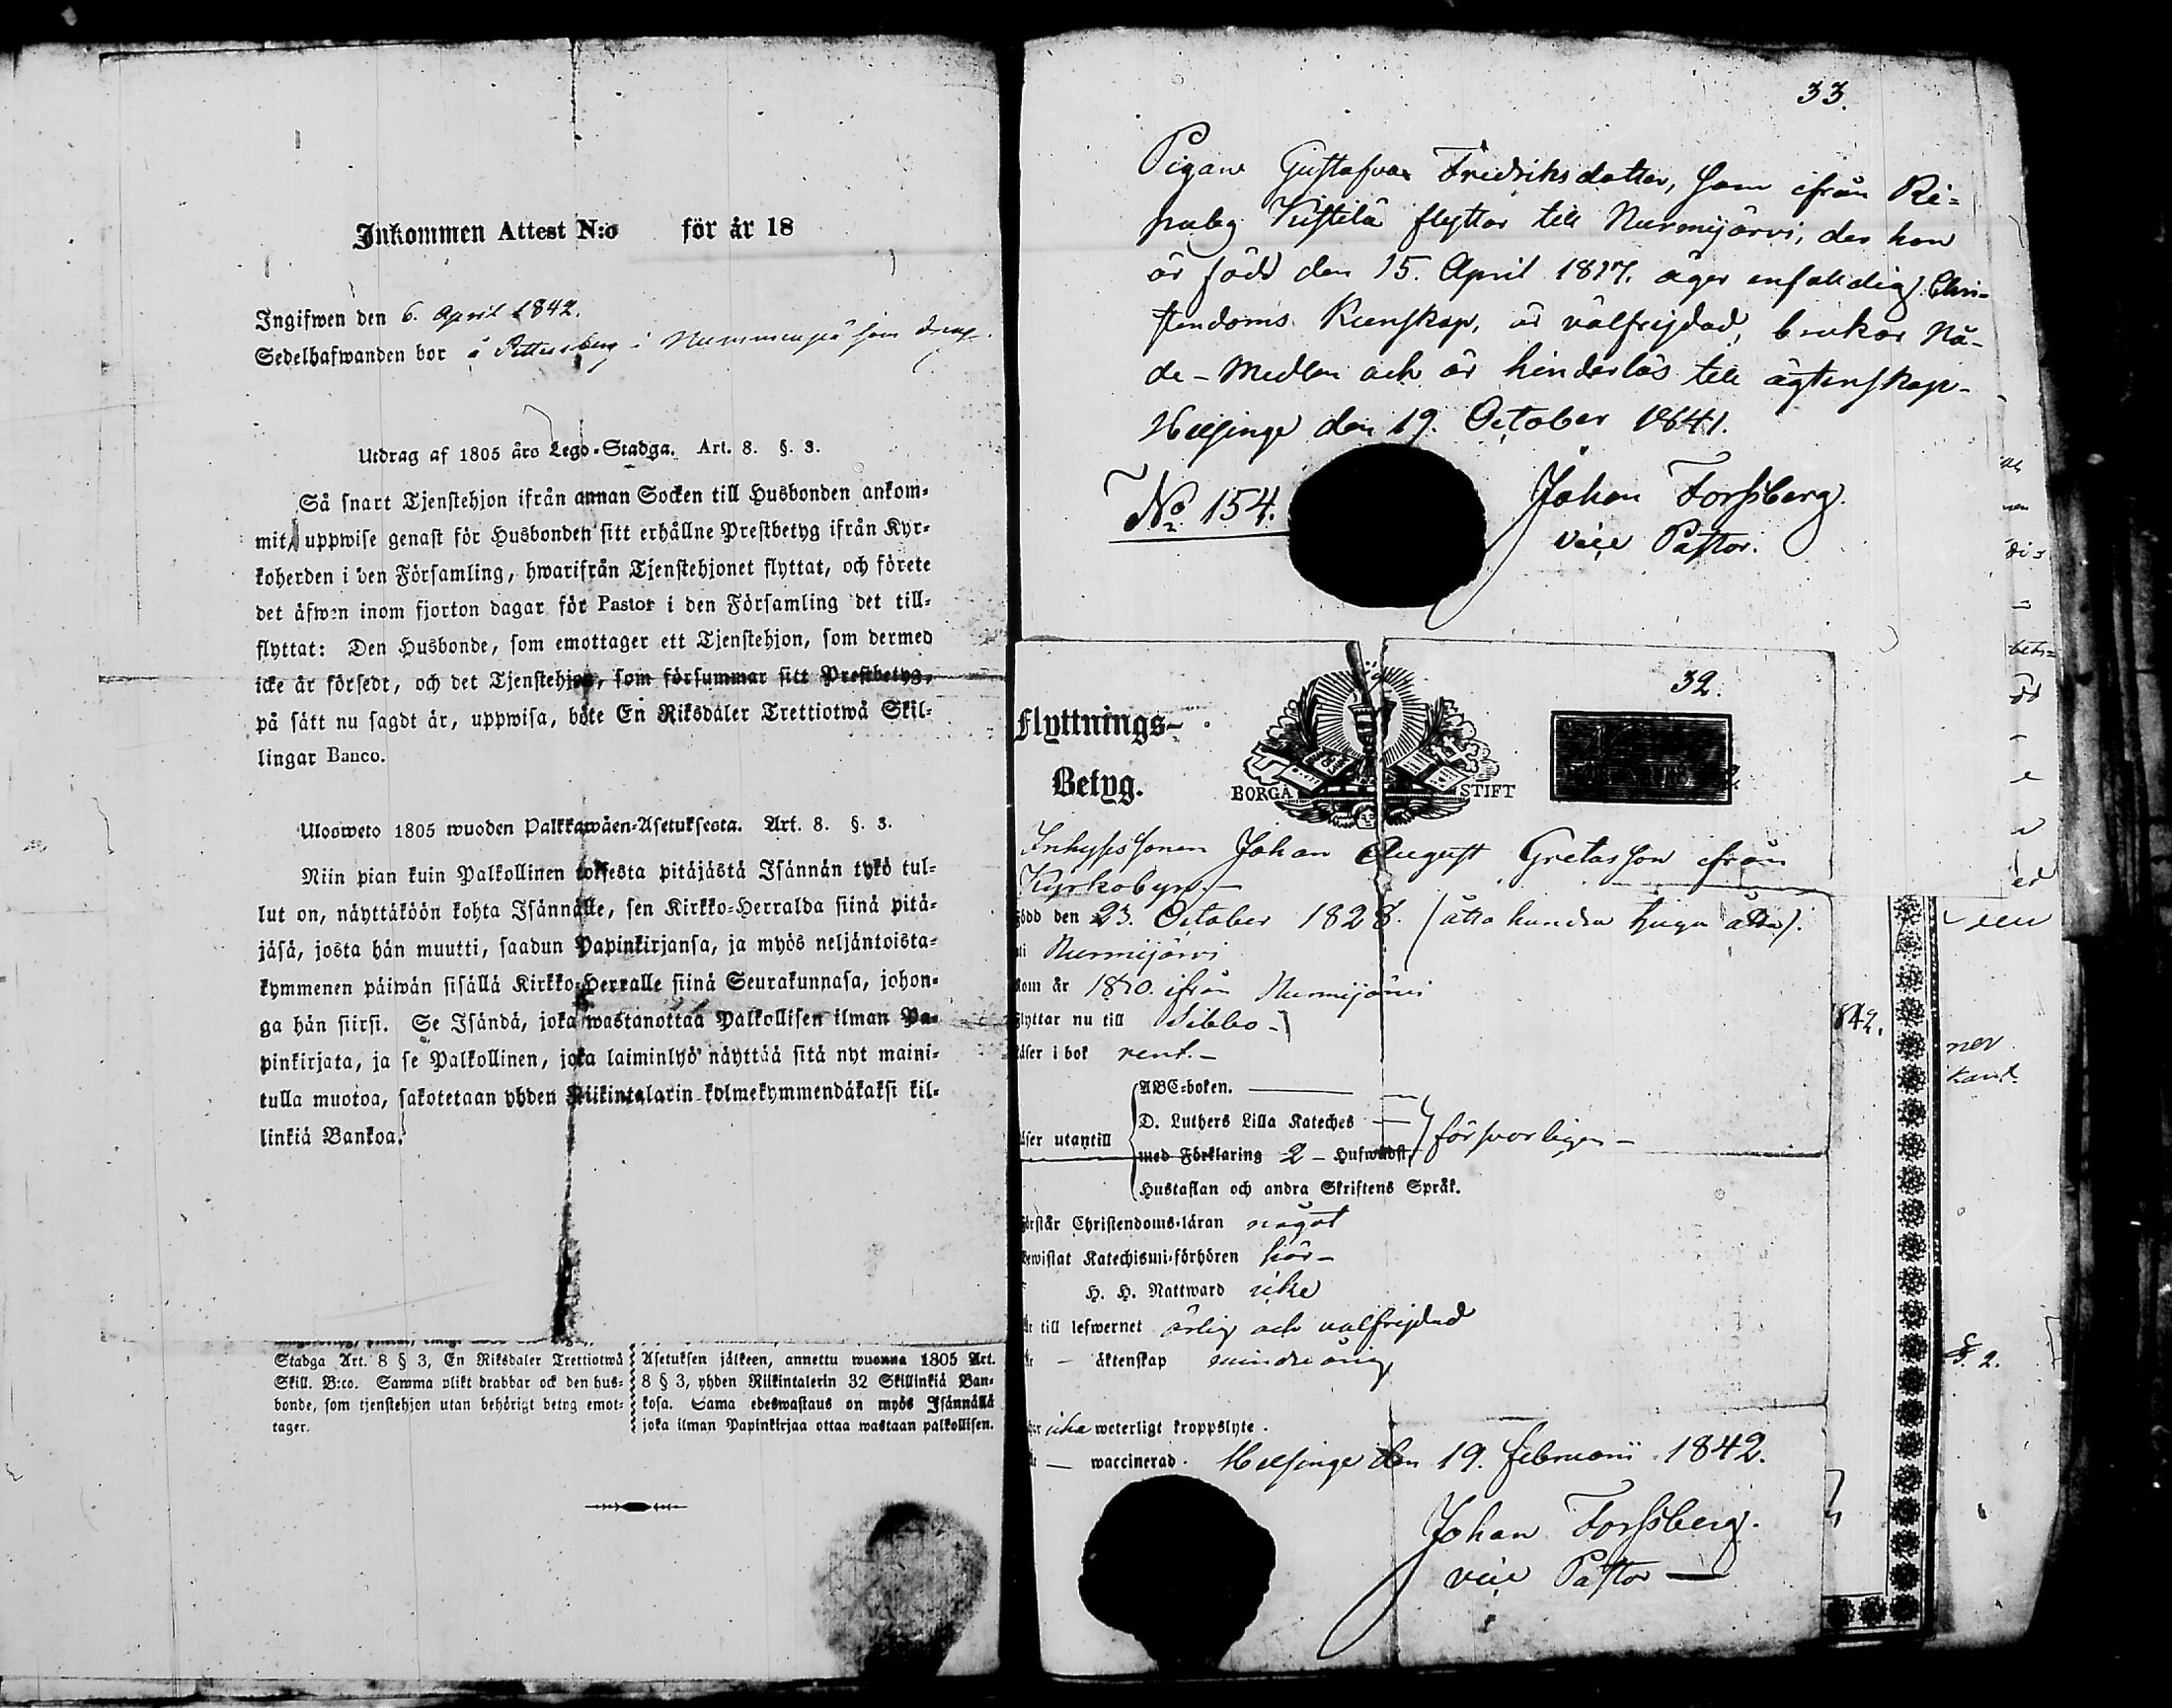 Inkommen Attest N:o för år 18
Ingifwen den 6. April 1842.
Sedelhafwanden bor å Pettersberg i Nummenpää som dreng.
Utdrag af 1805 års Lego-Stadga. Art. 8. §. 3.
Så snart Tjenstehjon ifrån annan Socken till Husbonden ankom-
mit, uppwise genast för Husbonden sitt erhållne Prestbetyg ifrån Kyr-
koherden i den Församling, hwarifrån Tjenstehjonet flyttat, och förete
det äfwen inom fjorton dagar för Pastor i den Församling det till-
flyttat: Den Husbonde, som emottager ett Tjenstehjon, som dermed
icke är försedt, och det Tjenstehjon, som försummar sitt Prestbetyg,
på sätt nu sagdt är, uppwisa, böte En Riksdaler Trettiotwå Skil-
lingar Banco.
Ulosweto 1805 wuoden Palkkawäen-Asetuksesta. Art. 8. §. 3.
Niin pian kuin Palkollinen toisesta pitäjästä Isännän tykö tul-
lut on, näyttäköön kohta Isännälle, sen Kirkko-Herralda siinä pitä-
jäsä, josta hän muutti, saadun Papinkirjansa, ja myös neljäntoista-
kymmenen päiwän sisällä Kirkko-Herralle siinä Seurakunnasa, johon-
ga hän siirsi. Se Isändä, joka wastanottaa Palkollisen ilman Pa-
pinkirjata, ja se Palkollinen, joka laiminlyö näyttää sitä nyt maini-
tulla muotoa, sakotetaan yhden Riikintalarin kolmekymmendäkaksi kil-
linkiä Bankoa.
Stadga Art. 8 § 3, En Riksdaler Trettiotwå
Skill. B:co. Samma plikt drabbar ock den hus-
bonde, som tjenstehjon utan behörigt betyg emot-
tager.
Asetuksen jälkeen, annettu wuonna 1805 Art.
8 § 3, yhden Riikintalerin 32 Skillinkiä Ban-
kosa. Sama edeswastaus on myös Isännällä
joka ilman Papinkirjaa ottaa wastaan palkollisen.
33.
Pigan Gustafva Fredriksdotter, som ifrån Ri-
puby Kistilä flyttar till Nurmijärvi, der hon
är född den 15. April 1817. äger enfaldig Chri-
stendoms Kunskap, är välfrejdad, brukar Nå-
de-Medlen och är hinderlös till ägtenskap-
Helsinge den 19. October 1841.
No 154.
Johan Forssberg.
vice Pastor.
32.
Flyttnings-
Betyg.
BORGÅ STIFT
Inhyses sonen Johan August Gretasson ifrån
Kyrkobyn.-
född den 23. October 1828. (åtta hundra tjugu åtta).
i Nurmijärvi
kom år 1840. ifrån Nurmijärvi
Flyttar nu till Sibbo-
Läser i bok rent.-
ABC-boken.
D. Luthers Lilla Kateches
Läser utantill med Förklaring 2 - Hufwudst. försvarligen -
Hustaflan och andra Skriftens Språk.
Förstår Christendoms-läran något
Bewistat Katechismi-förhören här-
H. H. Nattward icke
Är till lefwernet ärlig och välfrejdad
Är - äktenskap minderårig
Har icke weterligt kroppslyte.
Är - waccinerad. Helsinge den 19. Februarii 1842.
Johan Forssberg.
vice Pastor
842.
den
§. 2.